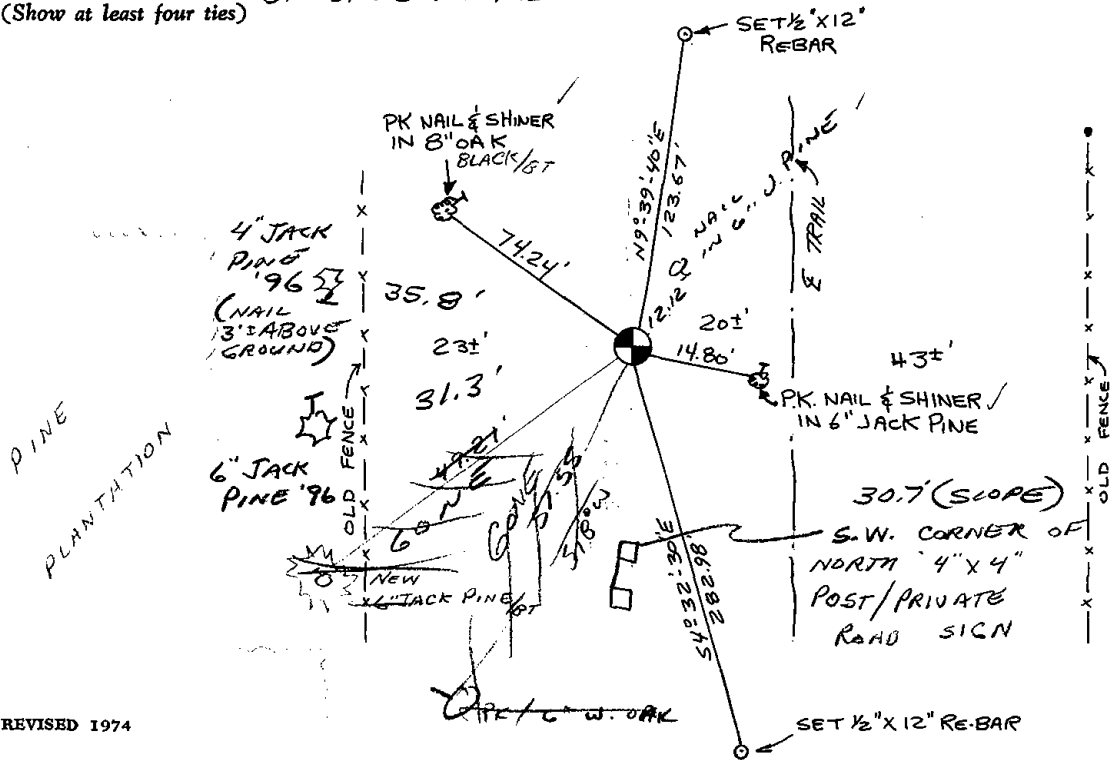 (Show at least four ties)
SET 1/2"X12"
REBAR
PK NAIL & SHINER
IN 8" OAK
BLACK/BT
N9°-39'-40"E
123.67'
NAIL
IN 6" J. PINE
12.12
℄ TRAIL
4" JACK
PINE
'96
(NAIL
3'± ABOVE
GROUND)
74.24'
35.8'
23±'
31.3'
20±'
14.80'
43±'
P.K. NAIL & SHINER
IN 6" JACK PINE
OLD FENCE
OLD FENCE
PINE
PLANTATION
6" JACK
PINE '96
49.21'
GONE
GONE
57.55
30.7' (SLOPE)
S.W. CORNER OF
NORTH 4"X4"
POST/PRIVATE
ROAD SIGN
282.98'
NEW
6" JACK PINE/BT
PK / 6" W. OAK
SET 1/2"X12" RE-BAR
REVISED 1974